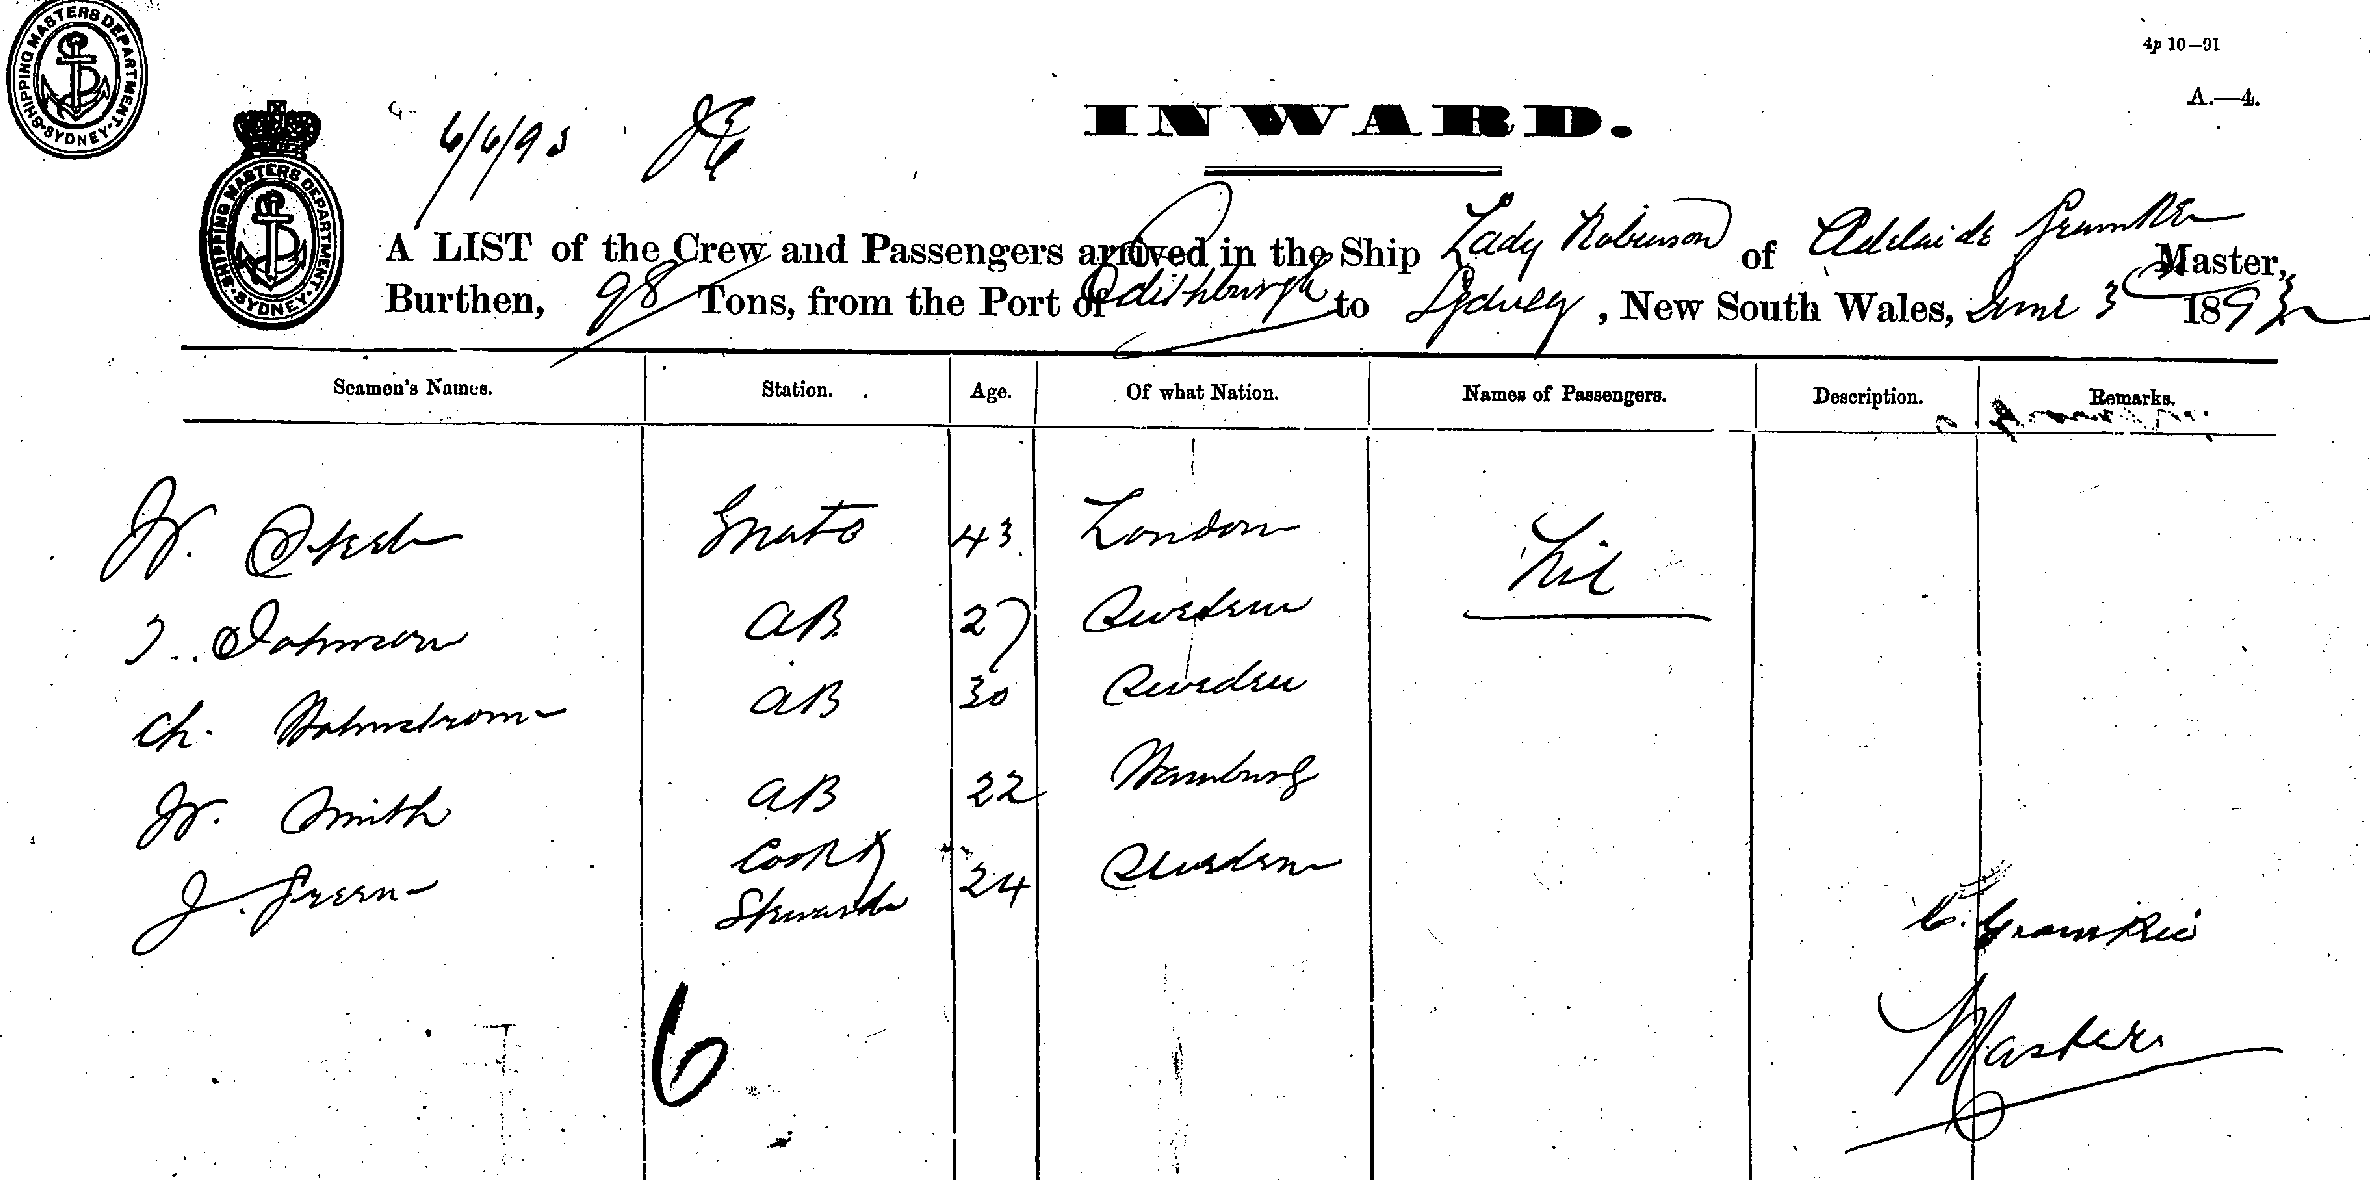 SHIPPING MASTERS DEPARTMENT. SYDNEY.
4p 10—91
A.—4.
6/6/93
INWARD.
SHIPPING MASTERS DEPARTMENT. SYDNEY.
A LIST of the Crew and Passengers arrived in the Ship Lady Robinson of Adelaide Master,
Burthen, 98 Tons, from the Port of Edithburgh to Sydney, New South Wales, June 3 1893
Seamen's Names. Station. Age. Of what Nation. Names of Passengers. Description. Remarks.
W. Mate 43 London Nil
Johnson AB 27 Sweden
Ch. Holmstrom AB 30 Sweden
W. Smith AB 22 Hamburg
J. Green Cook & Steward 24 Sweden
C. Gramkie
6
Master